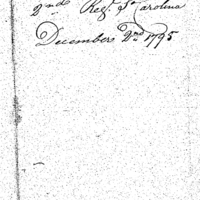 2nd Regt So Carolina
Decembere 2nd 1795